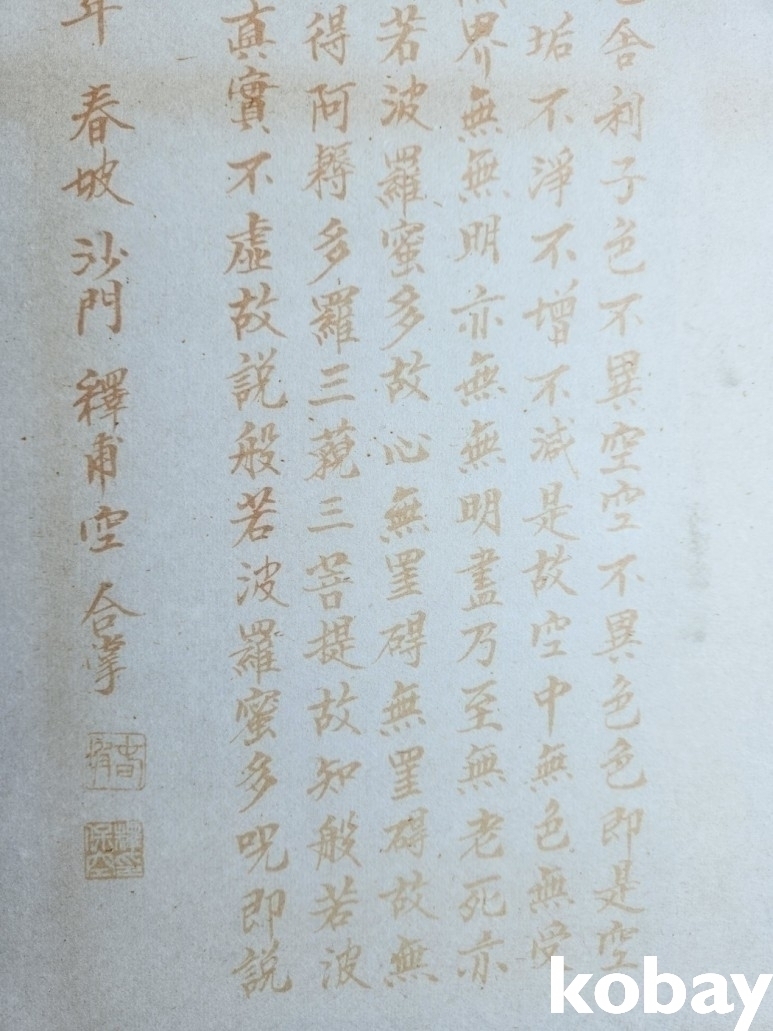 舍利子色不異空空不異色色即是空
垢不淨不增不減是故空中無色無受
界無無明亦無無明盡乃至無老死亦
若波羅蜜多故心無罣碍無罣碍故無
得阿耨多羅三藐三菩提故知般若波
真實不虛故說般若波羅蜜多呪即說
年 春坡 沙門 釋甫空 合掌
kobay